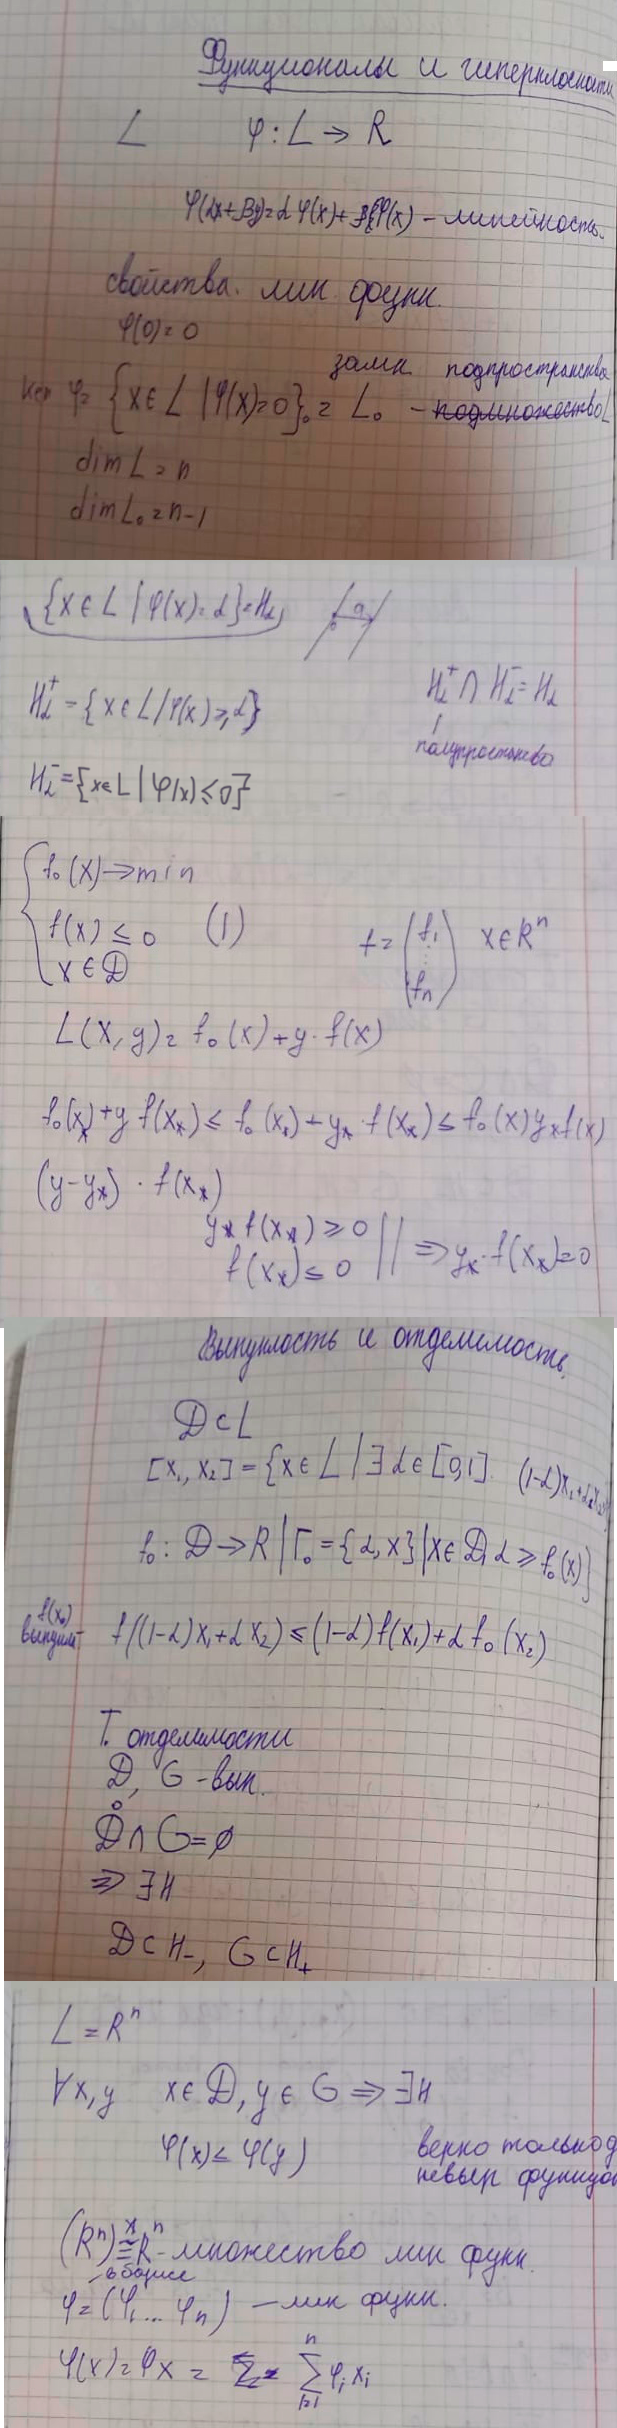 Функционалы и гиперплоскости
L φ: L → R
φ(αx+βy)=αφ(x)+βφ(x) – линейность.
свойства. лин. функц.
φ(0)=0
замк подпространство
Ker φ= {x∈L | φ(x)=0} = L₀ – подмножество L
dim L = n
dim L₀ = n-1
{x∈L | φ(x)=α} = Hα
Hα⁺ = {x∈L | φ(x) ≥ α}
Hα⁺ ∩ Hα⁻ = Hα
полупространства
Hα⁻ = {x∈L | φ(x) ≤ 0}
f₀(x) → min
f(x) ≤ 0 (1)
x∈D
f = (f₁ ⋮ fₙ) x∈Rⁿ
L(x,y) = f₀(x)+y·f(x)
f₀(x*)+y f(x*) ≤ f₀(x*)+y*·f(x*) ≤ f₀(x) y* f(x)
(y-y*)·f(x*)
y* f(x*) ≥ 0
f(x*) ≤ 0 || ⇒ y*·f(x*)=0
Выпуклость и отделимость.
D⊂L
[x₁, x₂] = {x∈L | ∃α∈[0,1]. (1-α)x₁+αx₂}
f₀: D→R | Γ₀ = {α,x} | x∈D, α ≥ f₀(x)}
f(x₀)
f((1-α)x₁+αx₂) ≤ (1-α)f(x₁)+αf₀(x₂)
Т. отделимости
D, G – вып.
D̊∩G=∅
⇒ ∃H
D⊂H₋, G⊂H₊
L = Rⁿ
∀x,y x∈D, y∈G ⇒ ∃H
φ(x) ≤ φ(y)
верно только д
невыр функцио
(Rⁿ)* ≅ Rⁿ – множество лин функ.
φ=(φ₁ … φₙ) – лин функ.
φ(x) = φx = Σ φᵢxᵢ